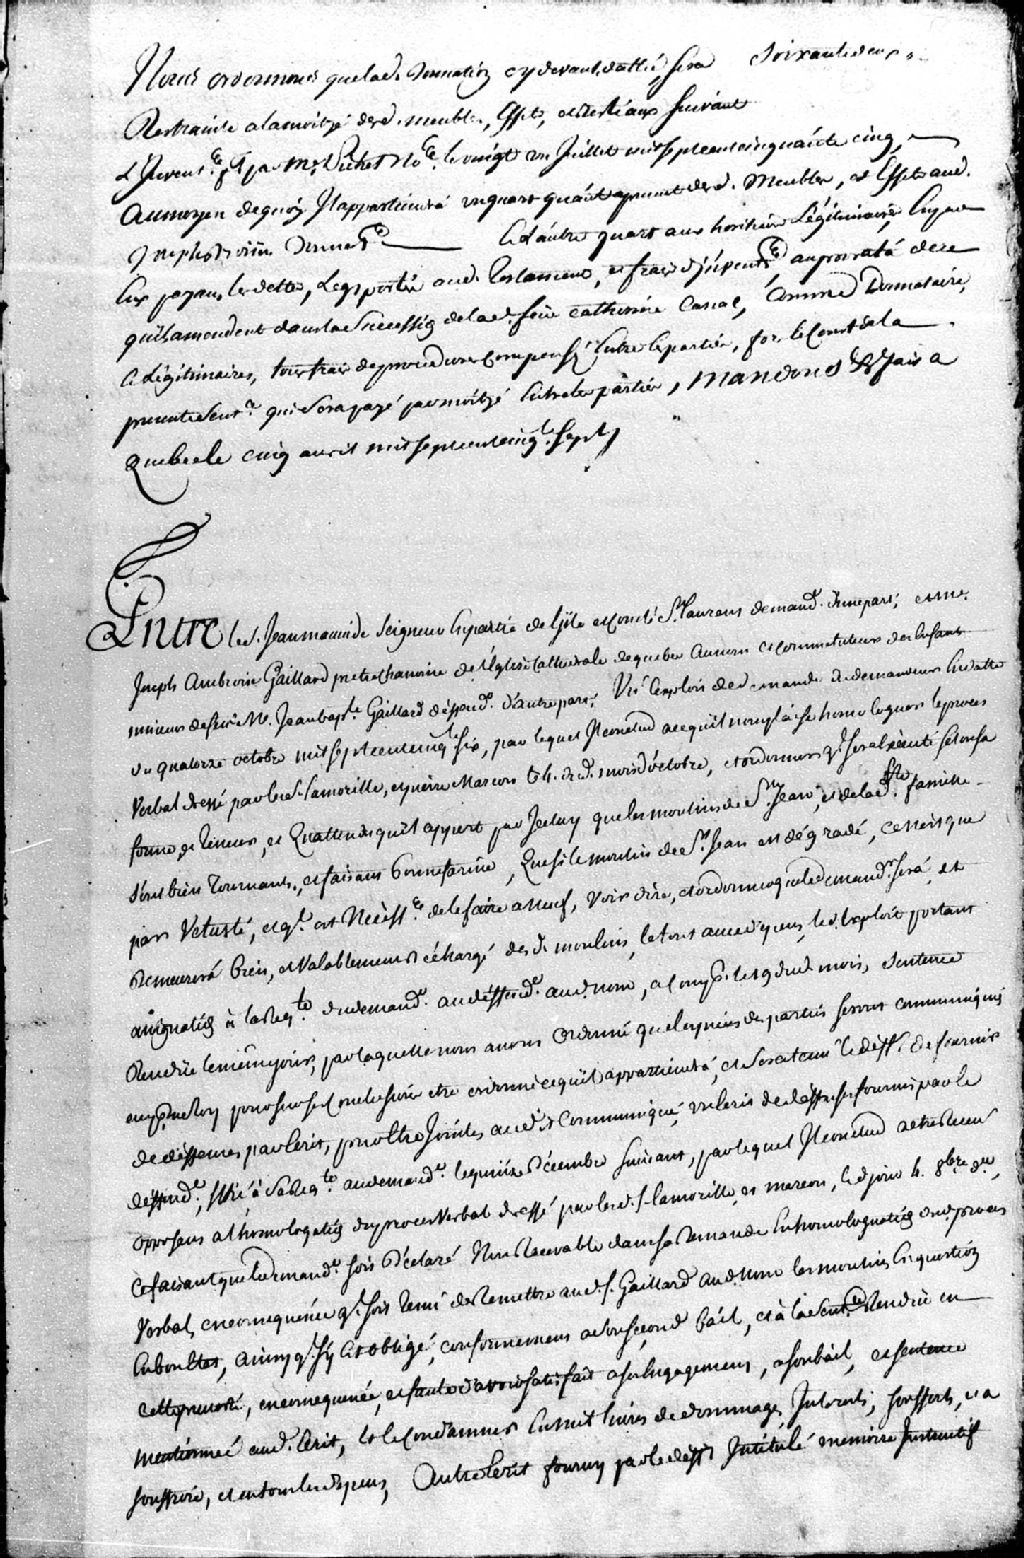 Nous ordonnons que lad. donnation cy devant dattée, sera Soixante deux
Restrainte a la moitié desd. meubles, Effets, et bestiaux suivant
L'Inventre. ft par Me Pichet Nore. le vingt un Juillet mil sept cent cinquante cinq,
au moyen de quoy Il appartiendra un quart quant a present desd. Meubles, et Effets aud.
Joseph donnare. Et l'autre quart aux heritiers Légitimaires, En par
Eux payant les dettes, Legs portés aud. Testament, et frais d'Inventre. au prorata de ce
qu'ils amendent dans la Succession de lad. feüe Catherine, comme Donnataire,
et Légitimaires, tous frais de procedures compensés Entre les parties, fors le Coust de la
presente Sentce. qui sera payé par moitié Entre les parties, Mandons &c fait a
Quebec le cinq avril mil sept cent cinqte. sept
Entre le s. Jean mauvide Seigneur En partie de l'isle et Comté St. Laurens demandr. d'une part, et me.
Joseph Ambroise Gaillard pretre Chanoine de l'Eglise Cathedrale de quebec au nom et comme tuteur des Enfants
mineurs de feu Me. Jean bapte. Gaillard deffendr. d'autre part. Vû l'exploit de demande du demandeur En datte
du quatorze octobre mil sept cent cinqte. six, par lequel Il conclud a ce qu'il nous plaise homologuer le procès
Verbal dressé par les s. Lamorille, et pierre Marcou le 4. dud. mois d'octobre, et ordonner qu'il sera Executé selon sa
forme et Teneur, et Qu'attendu qu'il appert par Iceluy que les moulins de St. Jean, et de la Ste. famille
sont bien Tournants, et faisant bonne farine, Que si le moulin de St. Jean est dégradé, ce n'est que
par Vetusté, et qu'il est Nécéssre. de le faire a neuf, Voir dire, et ordonner que le demandr. sera, et
demeurera bien, et Valablement déchargé desd. moulins, le tout avec dépens, led. Exploit portant
assignation à la Reqte. du demandr. au deffendr. aud. nom, a comp. le 19 dud. mois, Sentence
Rendüe le même jour, par laquelle nous avons Ordonné que les pieces des parties seront communiquées
au pour sur ses Conclusions etre ordonné ce qu'il appartiendra, et sera tenu le deffr. de fournir
de deffenses par Ecrit, pour Etre Jointes au Communiqué, un Ecrit de deffenses fourni par le
deffendr., Sifié à sa Reqte. au demandr. le quinze décembre suivant, par lequel Il conclud a etre Receu
opposant a l'homologation du procès Verbal dressé par les d. s. Lamorille, et marcou, led. jour 4. 8bre. dr.
Ce faisant que le demandr. soit déclaré Non Recevable dans sa demande En homologation dud. procès
Verbal, en consequence qu'il soit Tenu de Remettre aud. s. Gaillard aud. Nom les moulins En question
En bon Etat, ainsy qu'il s'y est obligé, conformement a leur second bail, et à la Sentce. Rendüe en
cette prevosté, en consequence, et faute d'avoir satisfait a son Engagement, a son bail, et sentence
mentionnés aud. Ecrit, le Condamner En mil livres de dommages, Interets, soufferts, et a
souffrir, et en tous les dépens, Autre Ecrit fourny par le deffr. Intitulé memoire Instructif